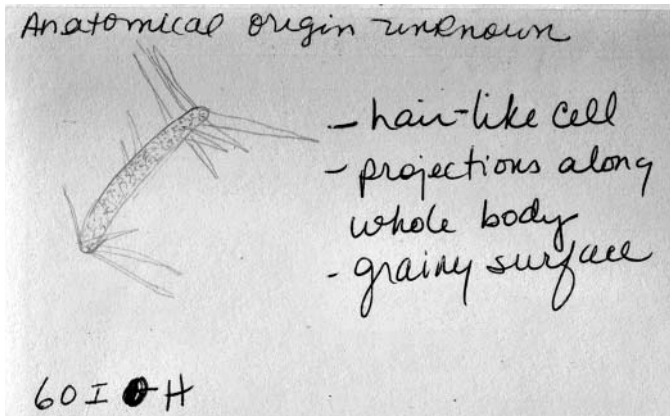 Anatomical origin unknown
- hair-like cell
- projections along
whole body
- grainy surface
60I H